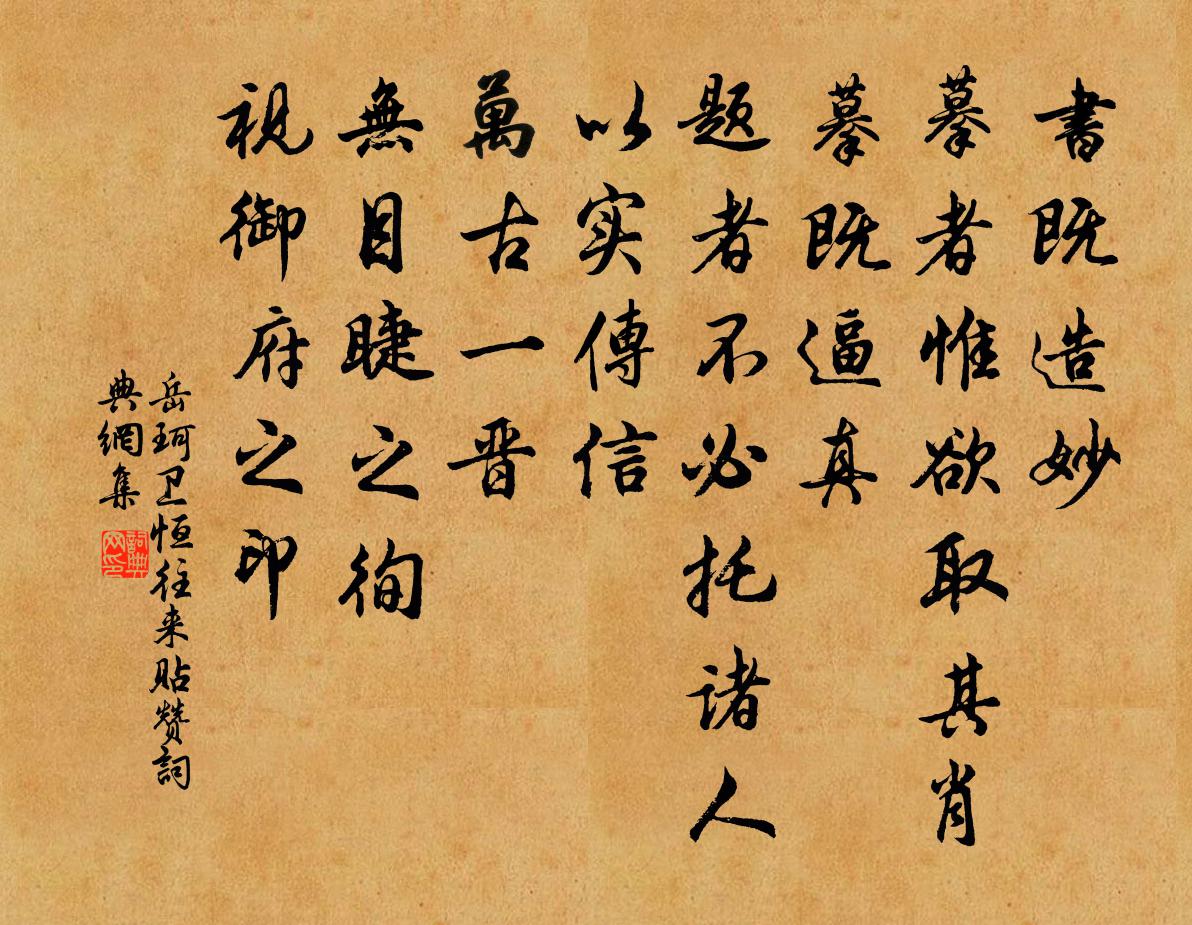 書既造妙
摹者惟欲取其肖
摹既逼真
题者不必托诸人
以实傳信
萬古一晋
無目睫之徇
視御府之印
岳珂卫恒往来贴赞詞
典網集
詞典
网印